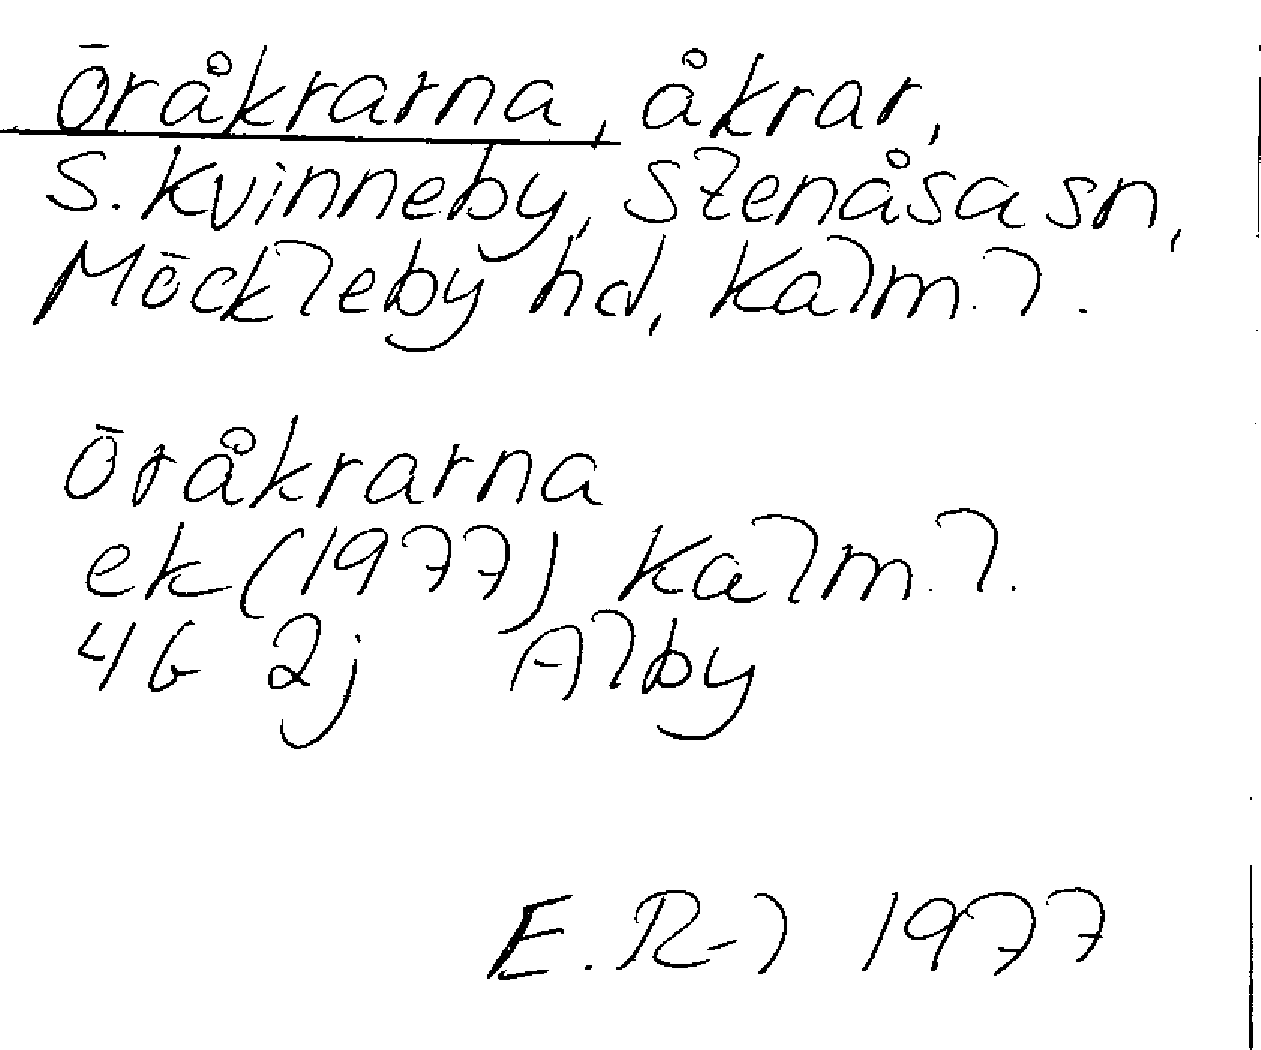 Öråkrarna, åkrar,
S. Kvinneby, Stenåsa sn,
Möckleby hd, Kalm. l.
Öråkrarna
ek (1977) Kalm. l.
4G 2j Alby
E. R-l 1977